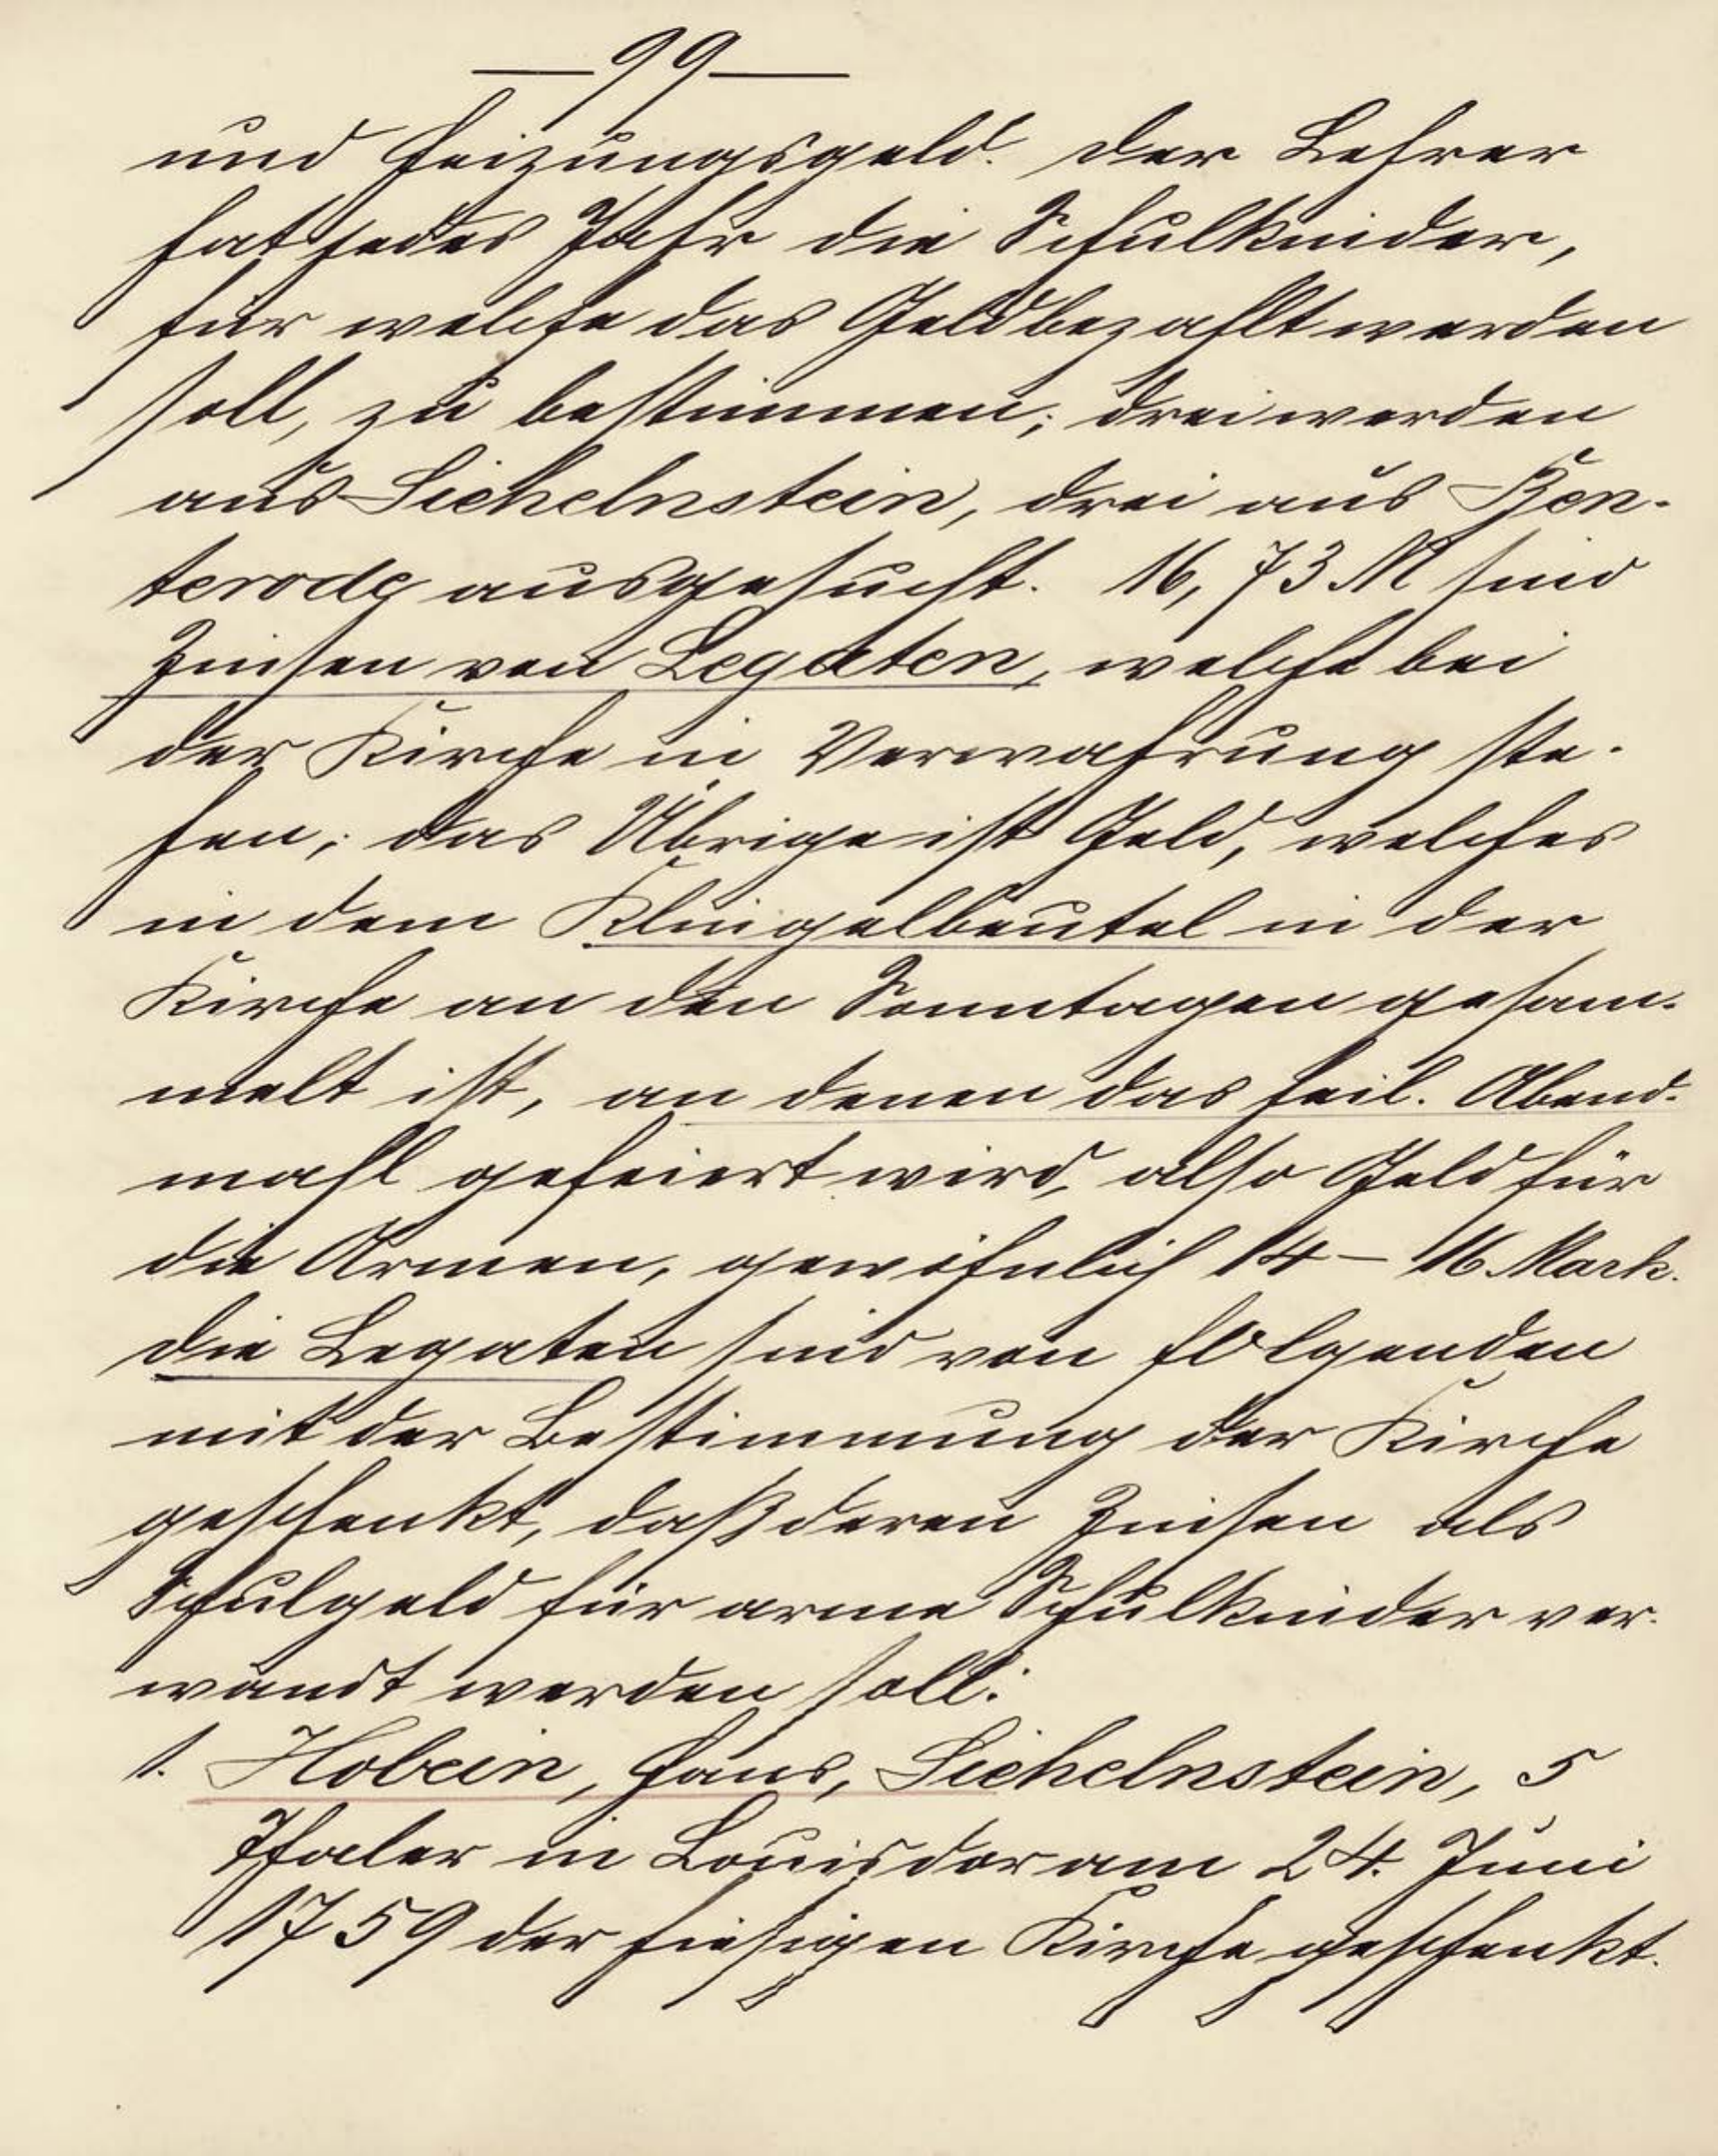 —99—
und Heizungsgeld. Der Lehrer
hat jedes Jahr die Schulkinder,
für welche das Geld bezahlt werden
soll, zu bestimmen; drei werden
aus Sichelnstein, drei aus Ben-
terode ausgesucht. 16,73 M sind
Zinsen von Legaten, welche bei
der Kirche in Verwahrung ste-
hen; das Übrige ist Geld, welches
in dem Klingelbeutel in der
Kirche an den Sonntagen gesam-
melt ist, an denen das heil. Abend-
mahl gefeiert wird, also Geld für
die Armen, gewöhnlich 14 – 16 Mark.
Die Legaten sind von folgenden
mit der Bestimmung der Kirche
geschenkt, daß deren Zinsen als
Schulgeld für arme Schulkinder ver-
wandt werden soll:
1. Hobein, Hans, Sichelnstein, 5
Thaler in Louisdor am 24. Juni
1759 der hiesigen Kirche geschenkt.